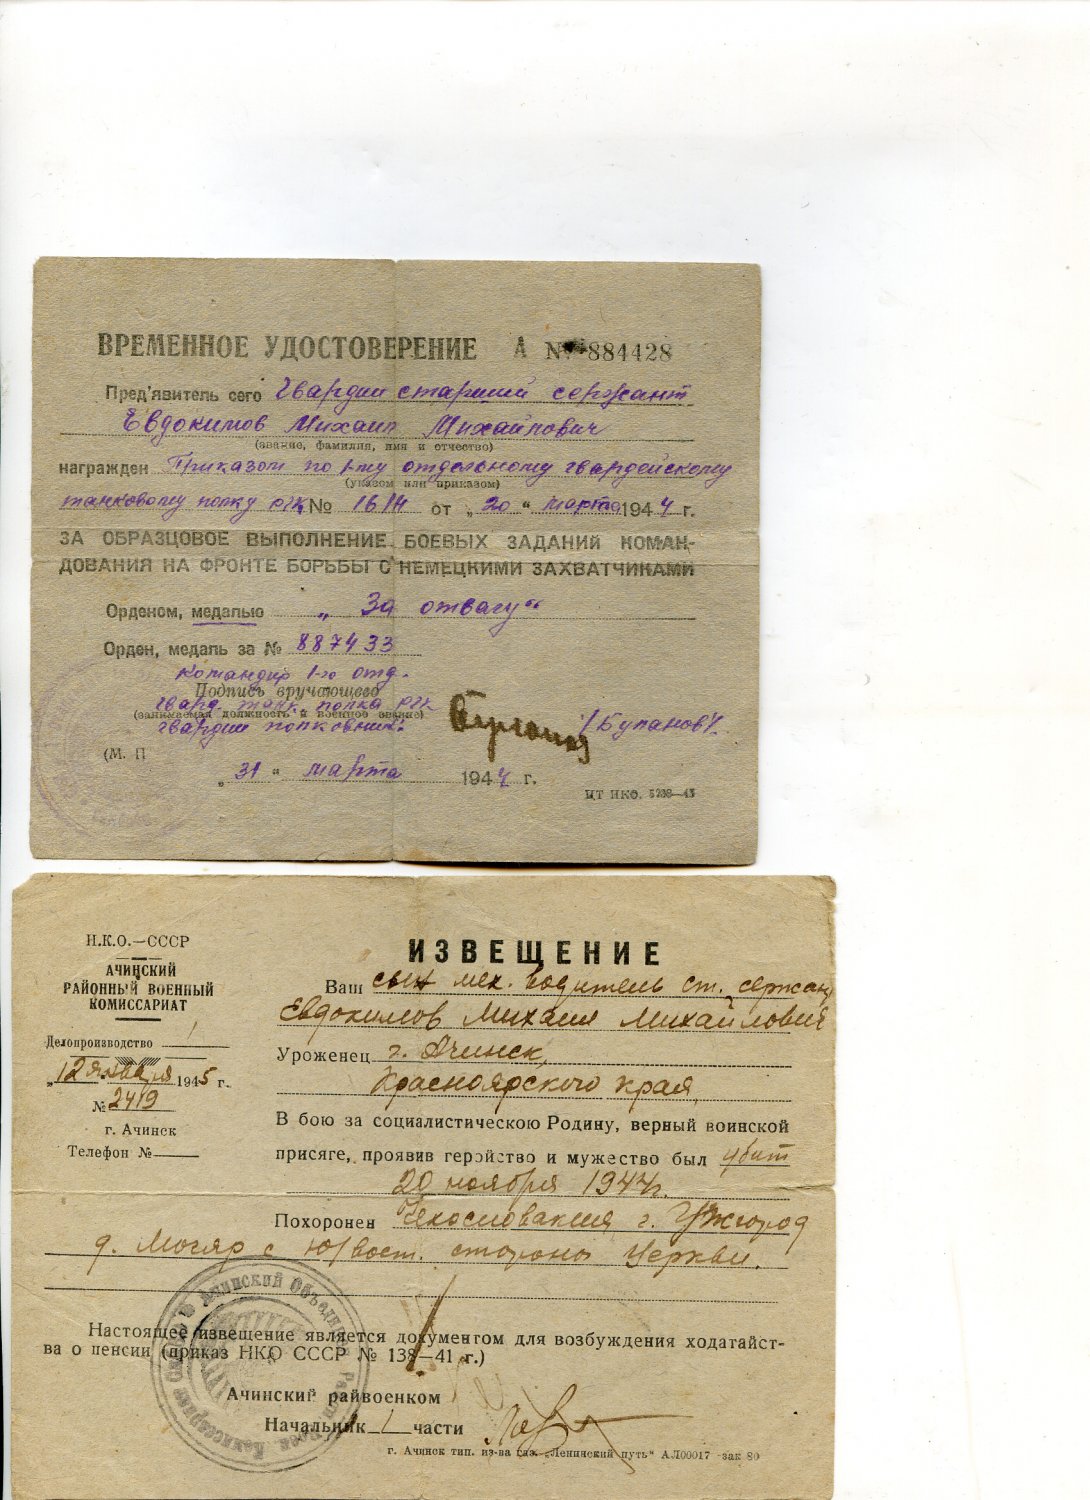 ВРЕМЕННОЕ УДОСТОВЕРЕНИЕ А № 884428
Пред'явитель сего Гвардии старший сержант
Евдокимов Михаил Михайлович
(звание, фамилия, имя и отчество)
награжден Приказом по 1-му отдельному гвардейскому
(указом или приказом)
танковому полку РГК № 16/н от „20“ марта 1944 г.
ЗА ОБРАЗЦОВОЕ ВЫПОЛНЕНИЕ БОЕВЫХ ЗАДАНИЙ КОМАН-
ДОВАНИЯ НА ФРОНТЕ БОРЬБЫ С НЕМЕЦКИМИ ЗАХВАТЧИКАМИ
Орденом, медалью „За отвагу“
Орден, медаль за № 887433
Командир 1-го отд.
Подпись вручающего
гвард. танк. полка РГК
(занимаемая должность и военное звание)
гвардии полковник: /Буланов/.
(М. П
„31“ марта 1944 г.
ЦТ НКО. 5238—43
Н.К.О.—СССР
АЧИНСКИЙ
РАЙОННЫЙ ВОЕННЫЙ
КОМИССАРИАТ
Делопроизводство 1
„12 января 1945 г.
№ 2419
г. Ачинск
Телефон №
ИЗВЕЩЕНИЕ
Ваш сын мех. водитель ст. сержант
Евдокимов Михаил Михайлович
Уроженец г. Ачинск,
Красноярского края,
В бою за социалистическою Родину, верный воинской
присяге, проявив геройство и мужество был убит
20 ноября 1944г.
Похоронен Чехословакия г. Ужгород
д. Могяр с юг/вост. стороны церкви.
Настоящее извещение является документом для возбуждения ходатайст-
ва о пенсии (приказ НКО СССР № 138—41 г.)
Ачинский райвоенком
Начальник 1 части
г. Ачинск тип. из-ва газ. „Ленинский путь“ АЛ00017 зак 80